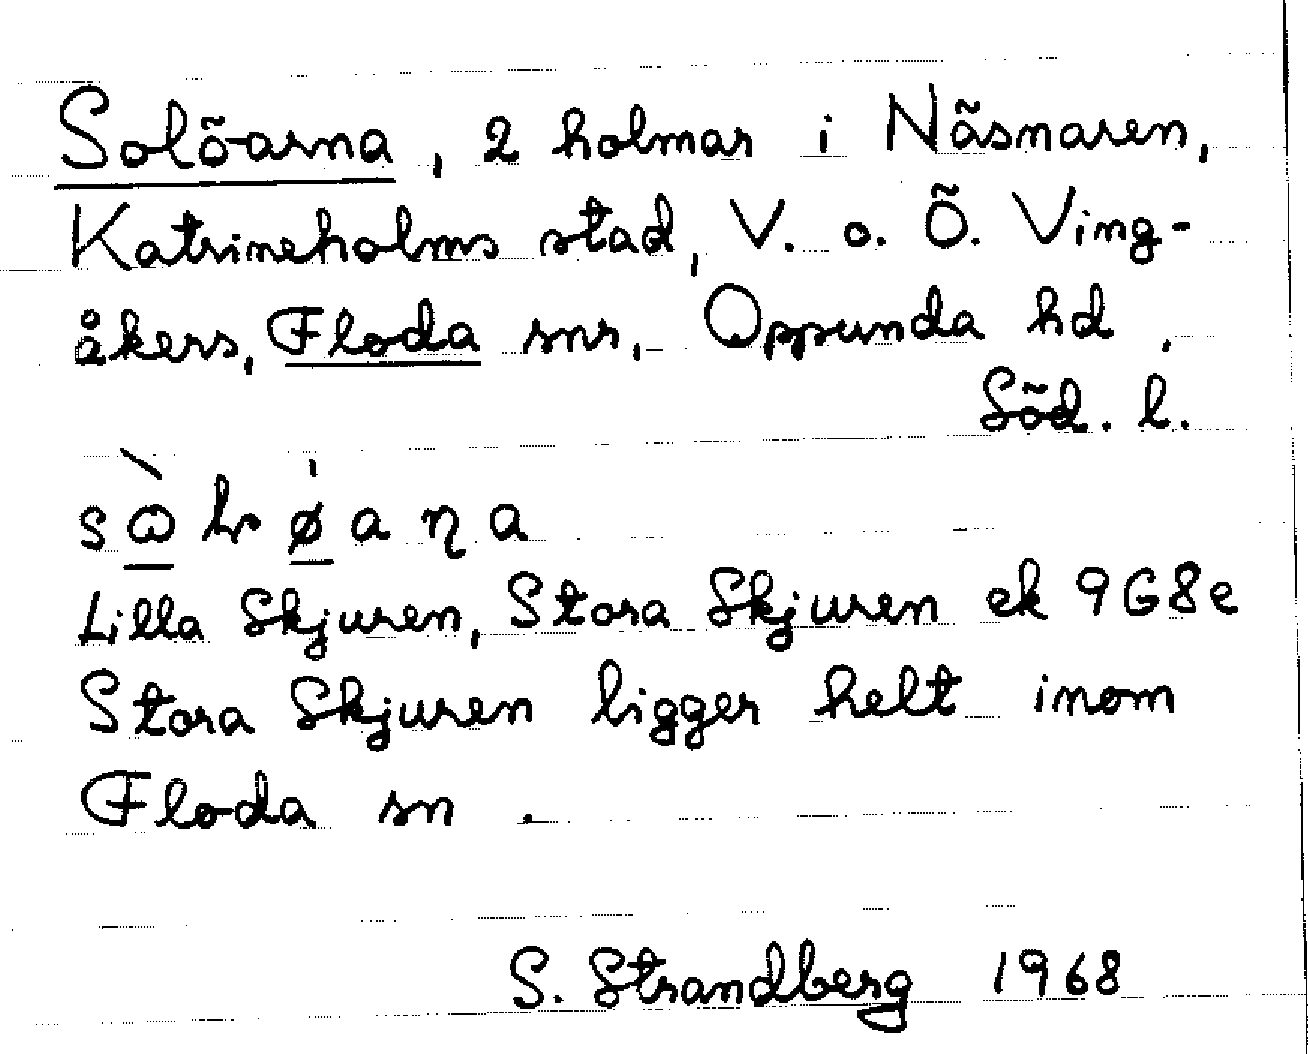 Solöarna, 2 holmar i Näsnaren,
Katrineholms stad, V. o. Ö. Ving-
åkers, Floda snr, Oppunda hd,
Söd. l.
Lilla Skjuren, Stora Skjuren ek 9G8e
Stora Skjuren ligger helt inom
Floda sn.
S. Strandberg 1968